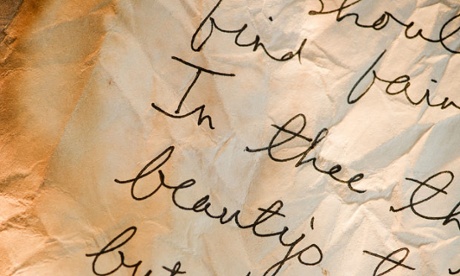 shoul
find fai
In thee th
beauty's t
but